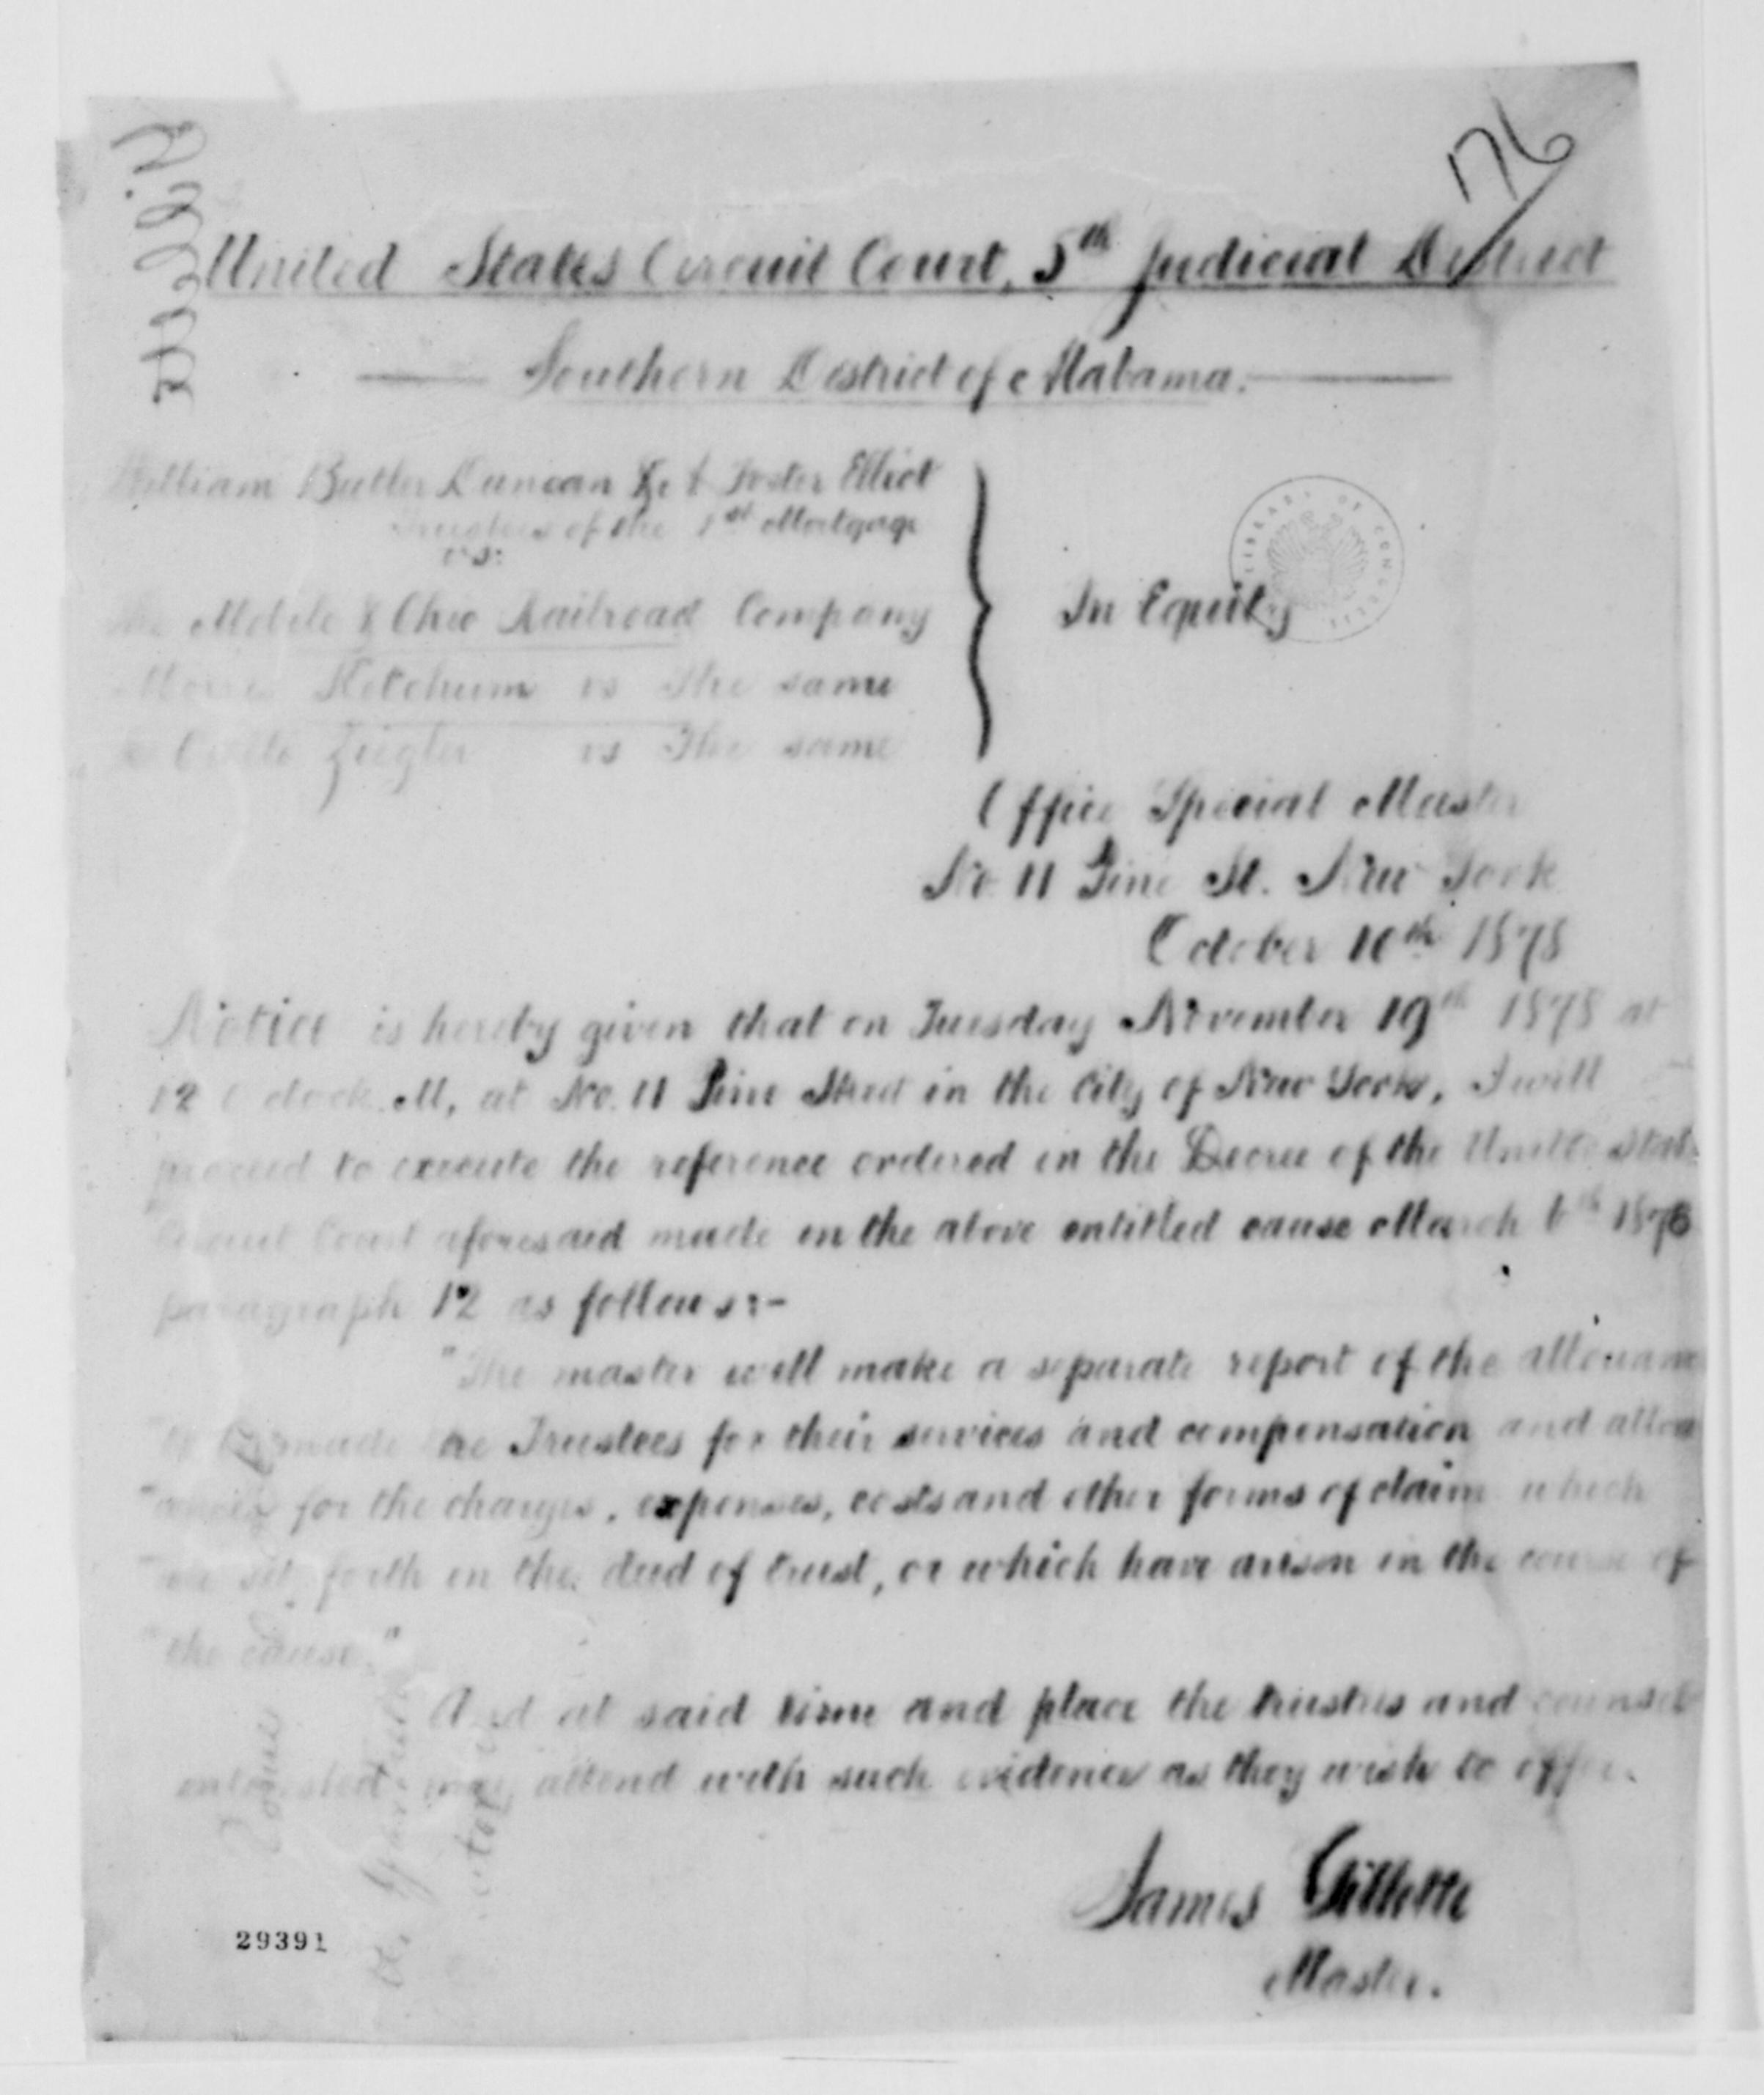 176
Gillette
United States Circuit Court, 5th Judicial District
Southern District of Alabama.
William Butler Duncan & A Foster Elliot
Trustees of the 1st Mortgage
vs:
The Mobile & Ohio Railroad Company
Morris Ketchum vs The same
Ziegler vs The same
In Equity
LIBRARY OF CONGRESS
Office Special Master
No. 11 Pine St. New York
October 10th 1878
Notice is hereby given that on Tuesday November 19th 1878 at
12 O'clock M, at No. 11 Pine Street in the City of New York, I will
proceed to execute the reference ordered in the Decree of the United States
Circuit Court aforesaid made in the above entitled cause March 1878
paragraph 12 as follows:-
"The master will make a separate report of the allowance
"to be made the Trustees for their services and compensation and allow
"ances for the charges, expenses, costs and other forms of claim which
"are set forth in the deed of trust, or which have arisen in the course of
"the cause."
And at said time and place the trustees and counsel
interested may attend with such evidence as they wish to offer.
James Gillette
Master.
29391